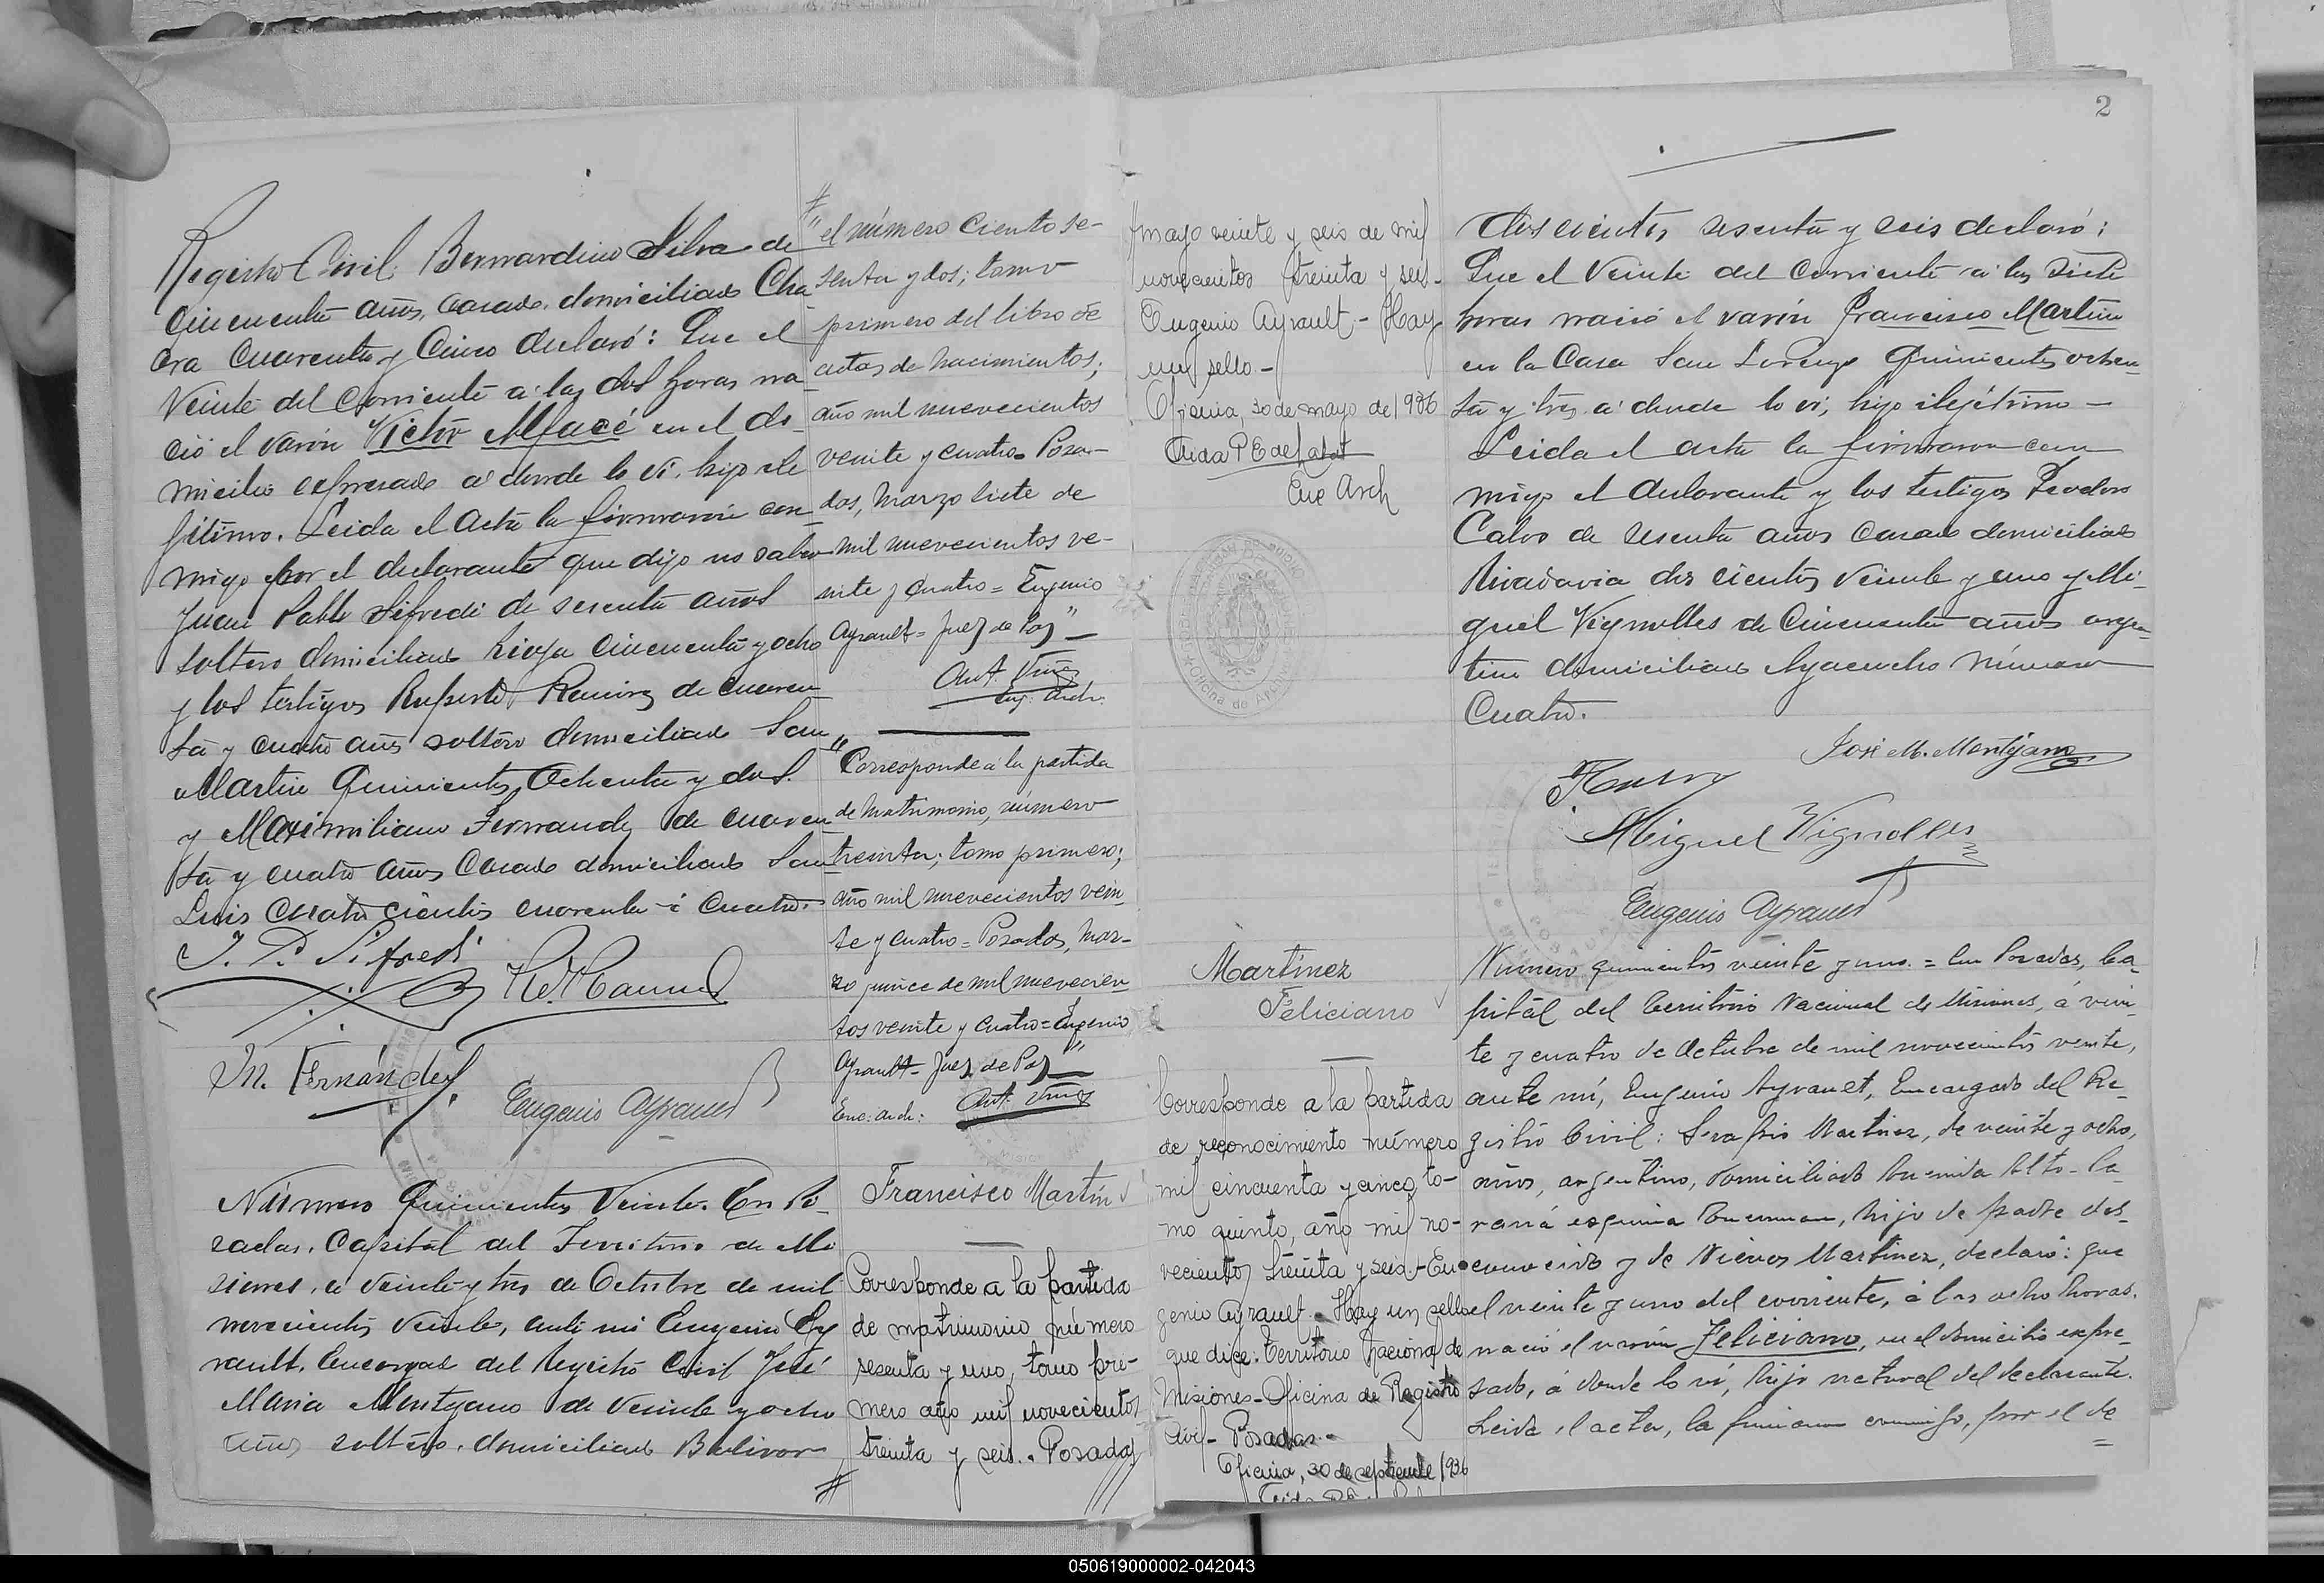 Registro Civil; Bernardino Silva de
Cincuenta años, casado, domiciliado Cha
cra Cuarenta y Cinco declaró: Que el
Veinte del Corriente a las dos horas na
ció el varón Victor Alfacé en el do-
micilio expresado a donde lo vi, hijo le
jítimo. Leida el Acta la firmaron con
migo por el declarante que dijo no saber
Juan Pablo Sifredi de sesenta años
soltero domiciliado Rioja cincuenta y ocho
y los testigos Ruperto Ramirez de cuaren
ta y cuatro años soltero domiciliado San
Martin Quinientos Ochenta y dos.
y Maximiliano Fernandez de cuaren
ta y cuatro años Casado domiciliado San
Luis Cuatro cientos cuarenta i cuatro.
J. P. Sifredi
M. Fernández
Eugenio Ayrault
Número Quinientos Veinte. En Po-
sadas, Capital del Territorio de Mi
siones, a veinte y tres de Octubre de mil
novecientos veinte, ante mi Eugenio Ay
rault, Encargado del Registro Civil José
Maria Montejano de Veinte y ocho
años soltero, domiciliado Bolivar
"el número ciento se-
senta y dos; tomo
primero del libro de
actas de nacimientos;
año mil nuevecientos
veinte y cuatro = Posa-
das, Marzo siete de
mil nuevecientos ve-
inte y cuatro = Eugenio
Ayrault = Juez de Paz" —
Enc. Arch.
"Corresponde a la partida
de Matrimonio, número
treinta; tomo primero;
año mil nuevecientos vein
te y cuatro = Posadas, Mar-
zo quince de mil nuevecien
tos veinte y cuatro = Eugenio
Ayrault = Juez de Paz" —
Enc. arch:
Francisco Martín
Corresponde a la partida
de matrimonio número
sesenta y uno, tomo pri-
mero año mil novecientos
treinta y seis.. Posadas
#
2
mayo veinte y seis de mil
novecientos treinta y seis-
Eugenio Ayrault.- Hay
un sello.-
Oficina, 30 de mayo de 1936
Enc Arch
Oficina de Archivo
doscientos sesenta y seis declaró:
Que el Veinte del Corriente a las siete
horas nació el varón Francisco Martin
en la Casa San Lorenzo Quinientos ochen
ta y tres a donde lo vi, hijo ilejítimo —
Leida el acta la firmaron con
migo el declarante y los testigos Teodoro
Calvo de sesenta años casado domiciliado
Rivadavia dos cientos veinte y uno y Mi-
guel Vignolles de Cincuenta años argen
tino domiciliado Ayacucho número
Cuatro.
José M. Montejano
Miguel Vignolles
Eugenio Ayrault
Martínez
Feliciano
Corresponde a la partida
de reconocimiento número
mil cincuenta y cinco, to-
mo quinto, año mil no-
vecientos treinta y seis.- Eu-
genio Ayrault.- Hay un sello
que dice: Territorio Nacional de
Misiones-Oficina de Registro
Civil- Posadas.-
Oficina, 30 de septiembre 1936
Número quinientos veinte y uno. = En Posadas, Ca-
pital del Territorio Nacional de Misiones, á vein
te y cuatro de Octubre de mil novecientos veinte,
ante mí, Eugenio Ayrault, Encargado del Re-
gistro Civil: Serafin Martinez, de veinte y ocho
años, argentino, domiciliado Avenida Alto-Pa-
raná esquina Tucuman, hijo de padre des-
conocido y de Nieves Martinez, declaró: que
el veinte y uno del corriente, á las ocho horas
nació el varón Feliciano, en el domicilio expre-
sado, á donde lo ví, hijo natural del declarante.
Leida el acta, la firmaron conmigo, por el de
050619000002-042043